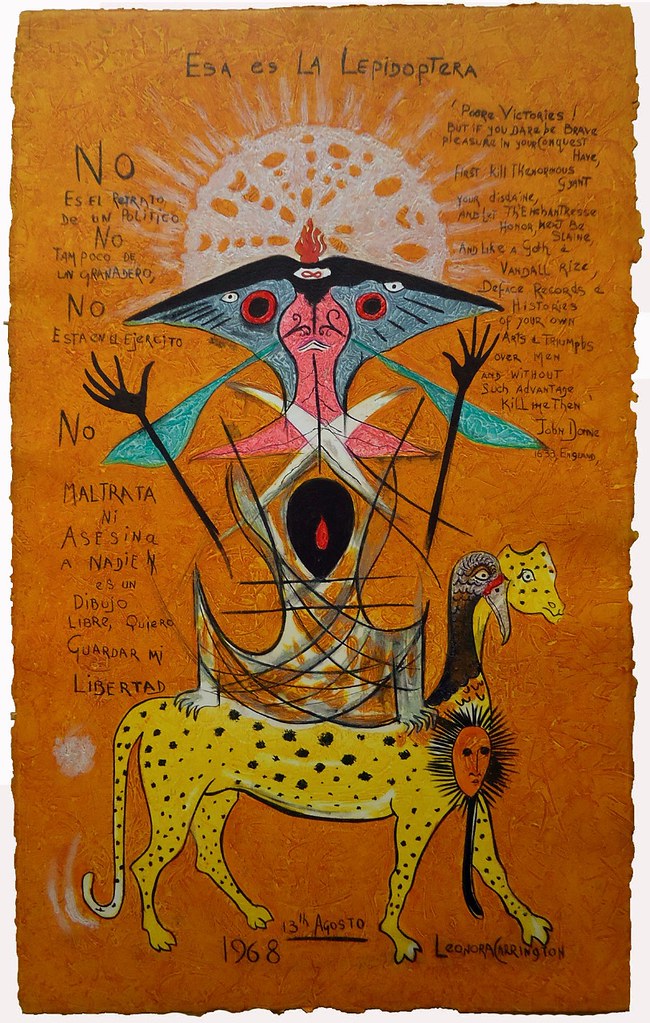 Esa es La Lepidoptera
No
Es el Retrato
de un Politico
No
Tampoco de
un granadero,
No
Esta en el Ejercito
No
Maltrata
ni
Asesina
a nadie y
es un
Dibujo
Libre, quiero
Guardar mi
Libertad
'Poore Victories!
But if you dare be Brave
pleasure in your Conquest
Have,
First Kill Thenormous
Gyant
your disdaine,
And let Th'Enchantresse
Honor, next Be
Slaine,
And Like a Goth &
Vandall rize,
Deface Records &
Histories
of your own
Arts & Triumphs
over men
and without
Such advantage
Kill me Then'
John Donne
1633, England,
13th Agosto
1968
Leonora Carrington